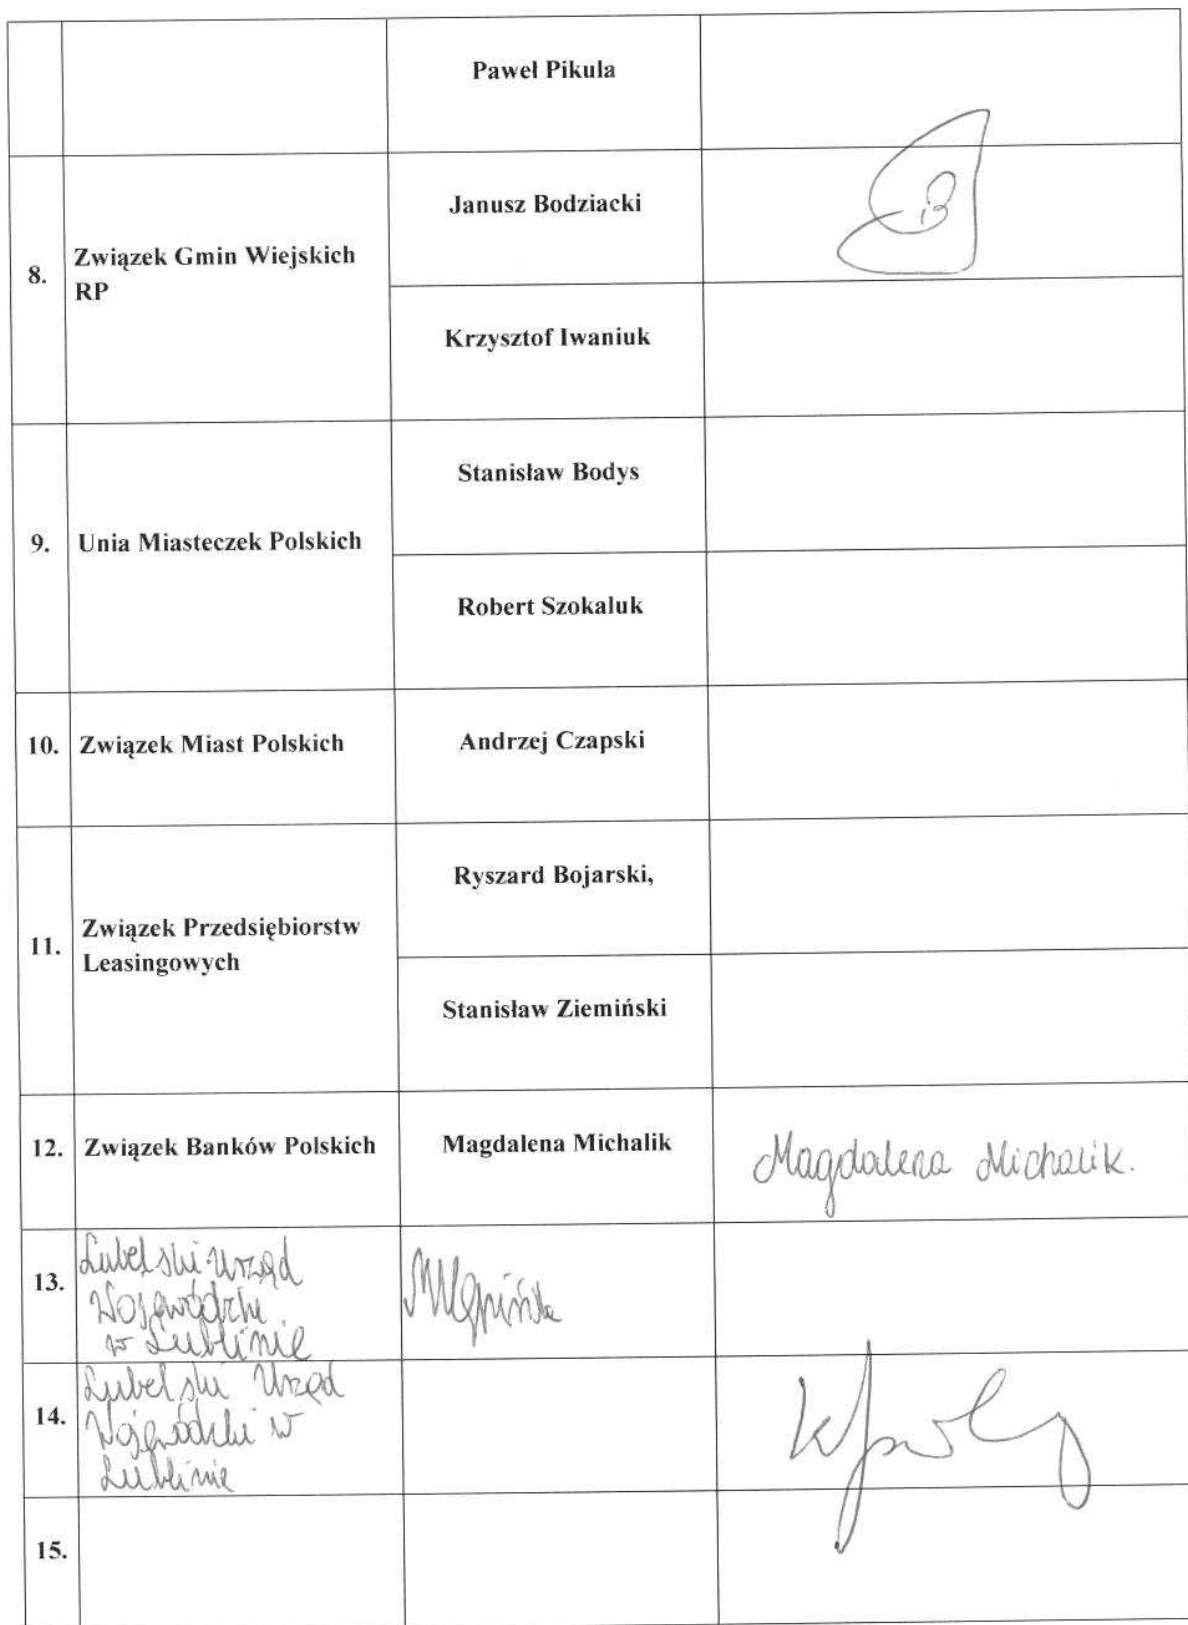 Paweł Pikula
8.
Związek Gmin Wiejskich
RP
Janusz Bodziacki
Krzysztof Iwaniuk
9.
Unia Miasteczek Polskich
Stanisław Bodys
Robert Szokaluk
10.
Związek Miast Polskich
Andrzej Czapski
11.
Związek Przedsiębiorstw
Leasingowych
Ryszard Bojarski,
Stanisław Ziemiński
12.
Związek Banków Polskich
Magdalena Michalik
Magdalena Michalik.
13.
Lubelski Urząd
Wojewódzki
w Lublinie
14.
Lubelski Urząd
Wojewódzki w
Lublinie
15.